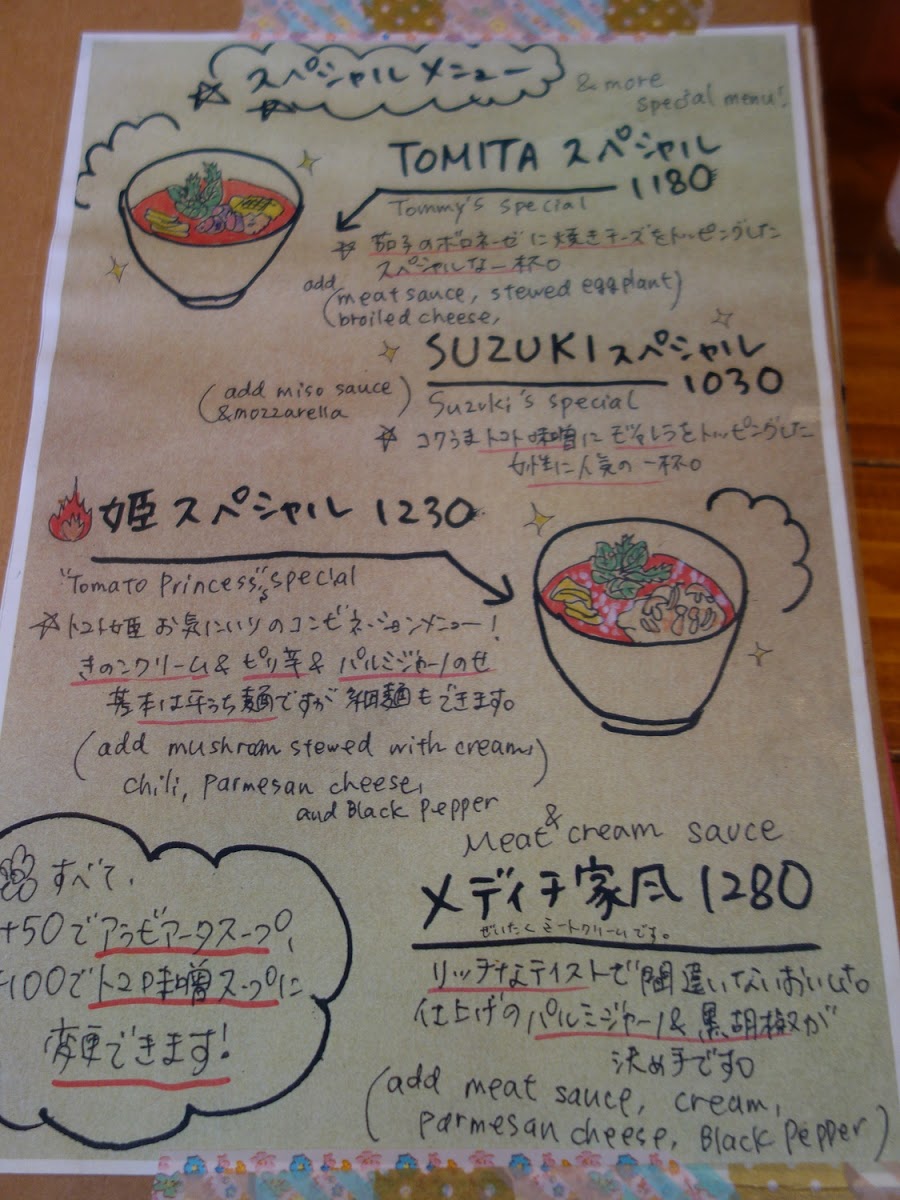 スペシャルメニュー
& more
special menu!
TOMITA スペシャル
1180
Tommy's special
茄子のボロネーゼに焼きチーズをトッピングした
スペシャルな一杯。
add
(meat sauce, stewed eggplant)
broiled cheese,
SUZUKI スペシャル
1030
(add miso sauce
& mozzarella)
Suzuki's special
コクうまトマト味噌にモッツァレラをトッピングした
女性に人気の一杯。
姫スペシャル 1230
"Tomato Princess's" special
トマト姫お気にいりのコンビネーションメニュー!
きのこクリーム & ピリ辛 & パルミジャーノのせ
基本は平うち麺ですが細麺もできます。
(add mushroom stewed with cream,
chili, parmesan cheese,
and Black pepper)
Meat & cream sauce
メディチ家風 1280
ぜいたくミートクリームです。
リッチなテイストで間違いないおいしさ。
仕上げのパルミジャーノ & 黒胡椒が
決め手です。
(add meat sauce, cream,
parmesan cheese, Black pepper)
すべて、
+50でアラビアータスープ、
+100でトマト味噌スープに
変更できます!